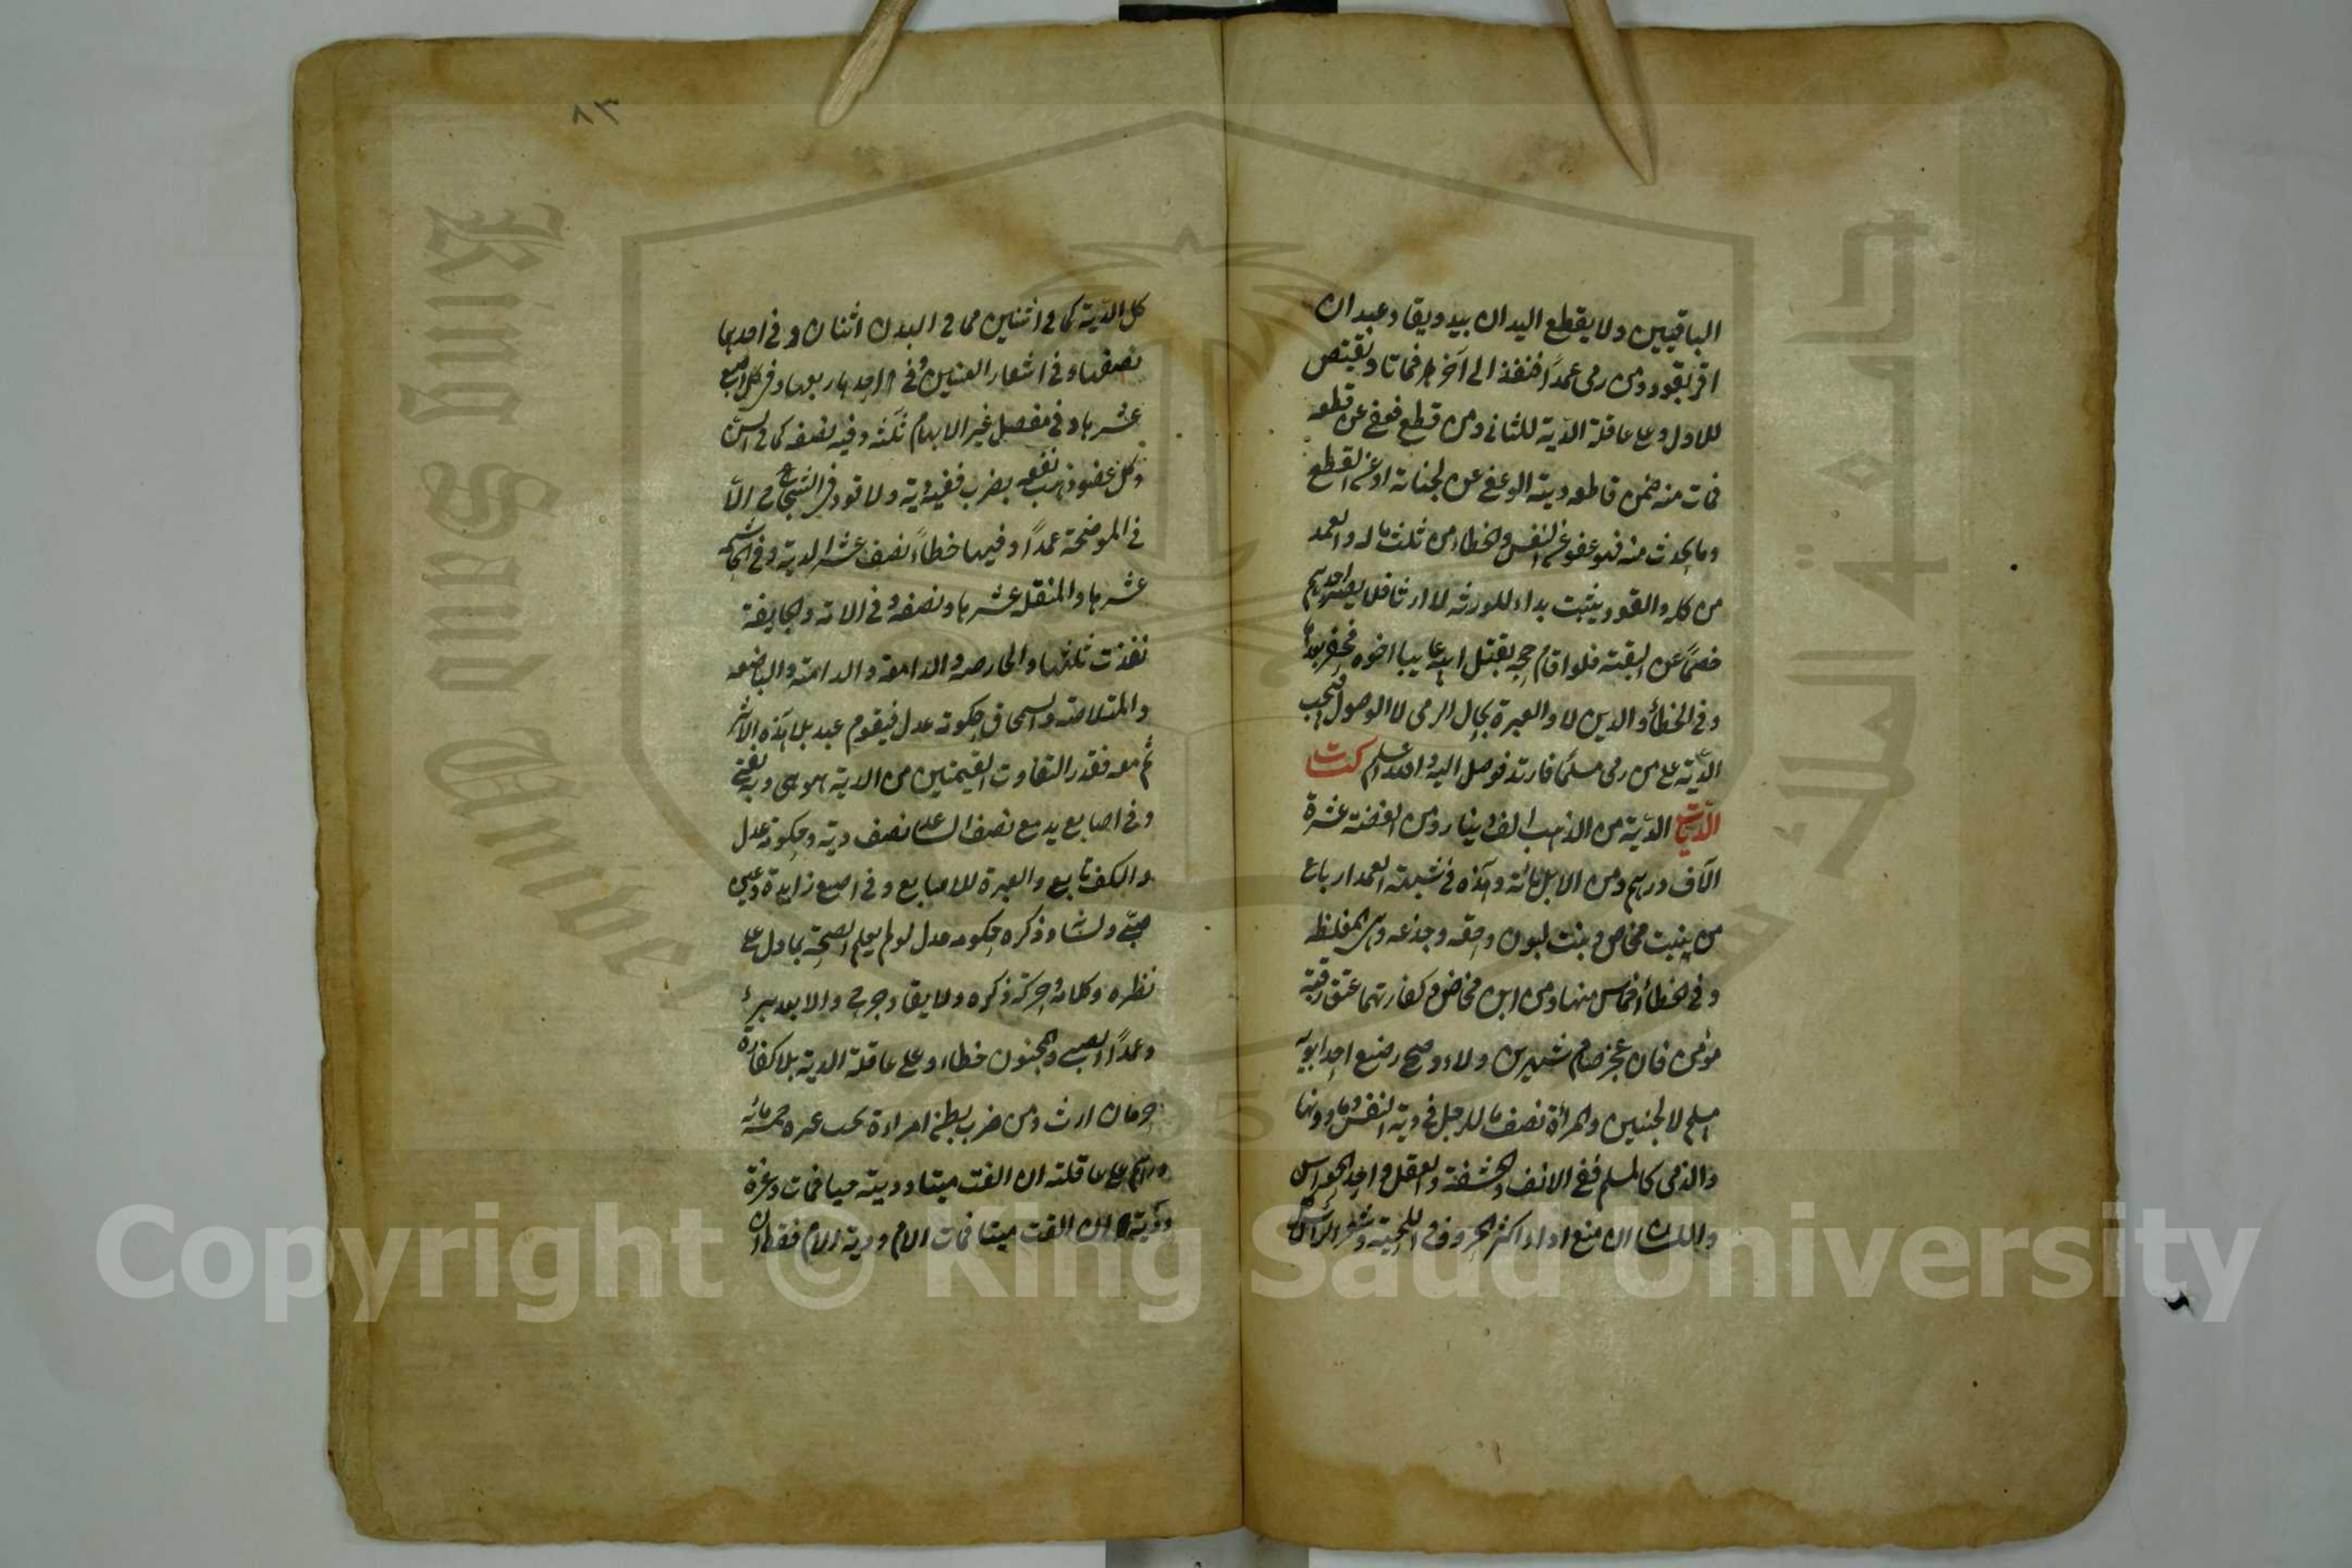 الباقيين ولا يقطع اليدان بيد ويقاد عبد ان
اقر بقود ومن رمى عمداً فنفذ الى آخر فماتا ويقتص
للاول وعلى عاقلة الدية للثاني ومن قطع فعفى عن قطعه
فمات منه ضمن قاطعه ديته الوعفى عن الجناية او عن القطع
وما يحدث منه فهو عفو عن النفس والخطاء من ثلث ماله والعمد
من كله والقود يثبت بداء للورثه لا ارثا فلا يصير احدهم
خصماً عن البقية فلو اقام حجه بقتل ابيه غايبا اخوه فحضر يعيد
وفى الخطأ والدين لا والعبرة بحال الرمى لا الوصول فتجب
الدية على من رمى مسلماً فارتد فوصل اليه وافقد اسلم كتاب
الديات الدية من الذهب الف دينار ومن الفضة عشرة
آلاف درهم ومن الابل مائة وهذه فى شبه العمد ارباع
من بنت مخاض وبنت لبون وحقه وجذعه وهى المغلظه
وفى الخطأ اخماس منها ومن ابن مخاض وكفارتهما عتق رقبة
مؤمن فان عجز صام شهرين ولاء وصح رضيع احد ابويه
مسلم لا الجنين والمرأة نصف ما للرجل فى دية النفس وما دونها
والذمى كالمسلم ففى الانف والحشفة والعقل واحد الحواس
واللسان ان منع اداء اكثر الحروف واللحية وشعر الرأس
٨٣
كل الدية كما فى اثنين مما فى البدن اثنان وفى احدهما
نصفها وفى اشفار العينين وفى احدها ربعها وفى كل اصبع
عشرها وفى مفصل غير الابهام ثلثه وفيه نصفه كما فى السن
وكل عضو ذهب نفعه بضرب ففيه دية ولا قود فى الشجاج الا
فى الموضحة عمداً وفيها خطاءً نصف عشر الدية وفى الهاشمه
عشرها والمنقله عشرها ونصفه وفى الامة والجايفة
نفذت ثلثها والحارصه والدامعة والدامية والباضعه
والمتلاحمه والسمحاق حكومة عدل فيقوم عبد بلا هذه الاثر
ثم معه فقدر التفاوت القيمتين من الدية هو هى وبه يفتى
وفى اصابع يد مع نصف الساعد نصف دية وحكومة عدل
والكف تابع والعبرة للاصابع وفى اصبع زايدة وعين
صبى ولسانه وذكره حكومه عدل لو لم يعلم الصحة بما دل على
نظره وكلامه وحركة ذكره ولا يقاد جرح الا بعد برء
وعمد الصبى والمجنون خطاء وعلى عاقلة الدية بلا كفارة
حرمان ارث ومن ضرب بطن امراءة تجب غره خمسمائه
درهم على عاقلته ان القت ميتا ودية حيا فمات وغرة
ودية ان القت ميتا فمات الام ودية الام فقط ان
King Saud University
Copyright © King Saud University